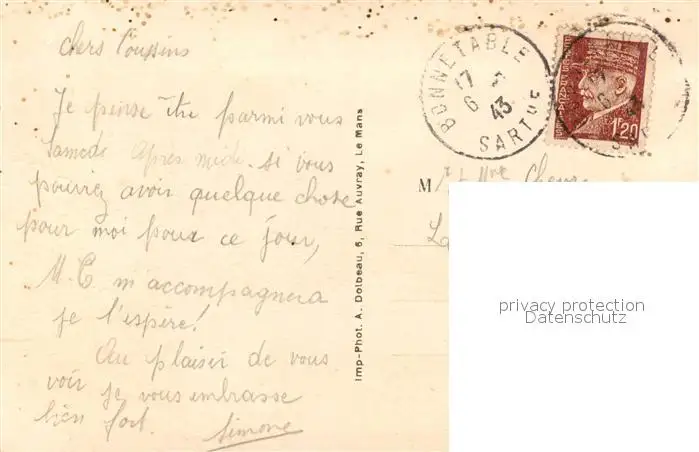 Chers Cousins
Je pense être parmi vous
Samedi après midi. si vous
pouviez avoir quelque chose
pour moi pour ce jour,
M. C. m'accompagnera
je l'espère!
Au plaisir de vous
voir je vous embrasse
bien fort.
Simone
Imp-Phot. A. Dolbeau, 6, Rue Auvray, Le Mans
BONNETABLE
17
6
43
SARTHE
1.20
M
Mme
privacy protection
Datenschutz